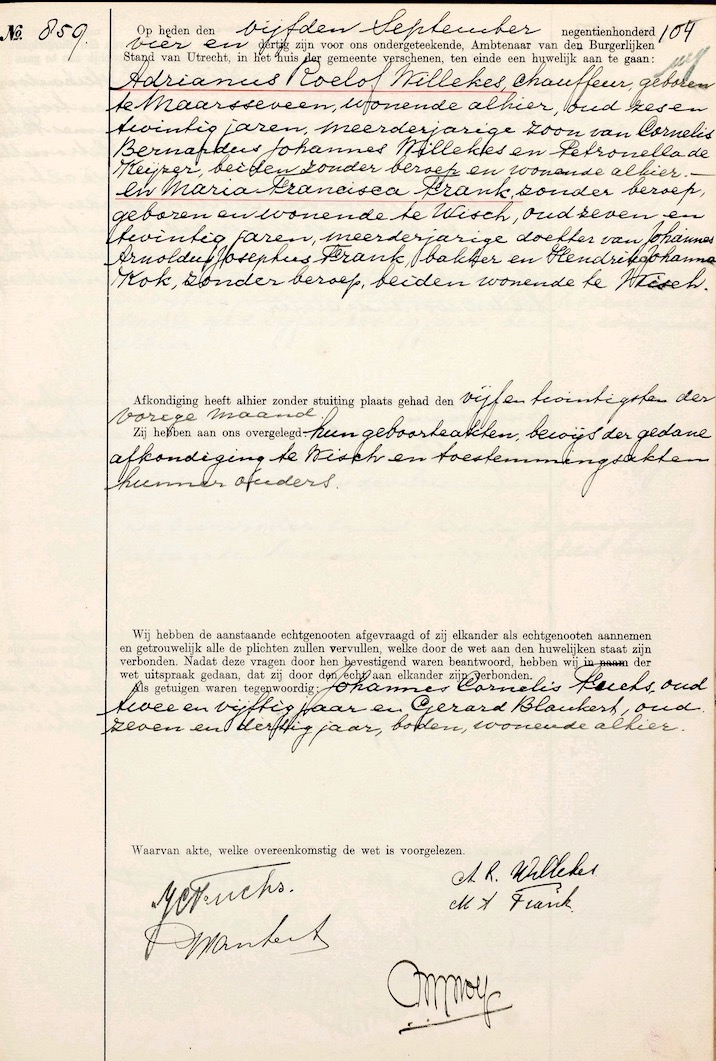 No. 859.
104
Op heden den vijfden September negentienhonderd
vier en dertig zijn voor ons ondergeteekende, Ambtenaar van den Burgerlijken
Stand van Utrecht, in het huis der gemeente verschenen, ten einde een huwelijk aan te gaan:
Adrianus Roelof Willekes, chauffeur, geboren
te Maarsseveen, wonende alhier, oud zes en
twintig jaren, meerderjarige zoon van Cornelis
Bernardus Johannes Willekes en Petronella de
Keijzer, beiden zonder beroep en wonende alhier. —
en Maria Francisca Frank, zonder beroep,
geboren en wonende te Wisch, oud zeven en
twintig jaren, meerderjarige dochter van Johannes
Arnoldus Josephus Frank, bakker en Hendrina Johanna
Kok, zonder beroep, beiden wonende te Wisch.
Afkondiging heeft alhier zonder stuiting plaats gehad den vijf en twintigsten der
vorige maand.
Zij hebben aan ons overgelegd: hun geboorteakten, bewijs der gedane
afkondiging te Wisch en toestemmingsakten
hunner ouders.
Wij hebben de aanstaande echtgenooten afgevraagd of zij elkander als echtgenooten aannemen
en getrouwelijk alle de plichten zullen vervullen, welke door de wet aan den huwelijken staat zijn
verbonden. Nadat deze vragen door hen bevestigend waren beantwoord, hebben wij in naam der
wet uitspraak gedaan, dat zij door den echt aan elkander zijn verbonden.
Als getuigen waren tegenwoordig: Johannes Cornelis Fuchs, oud
twee en vijftig jaar en Gerard Blankert, oud
zeven en dertig jaar, boden, wonende alhier.
Waarvan akte, welke overeenkomstig de wet is voorgelezen.
JC Fuchs.
A. R. Willekes
M F Frank.